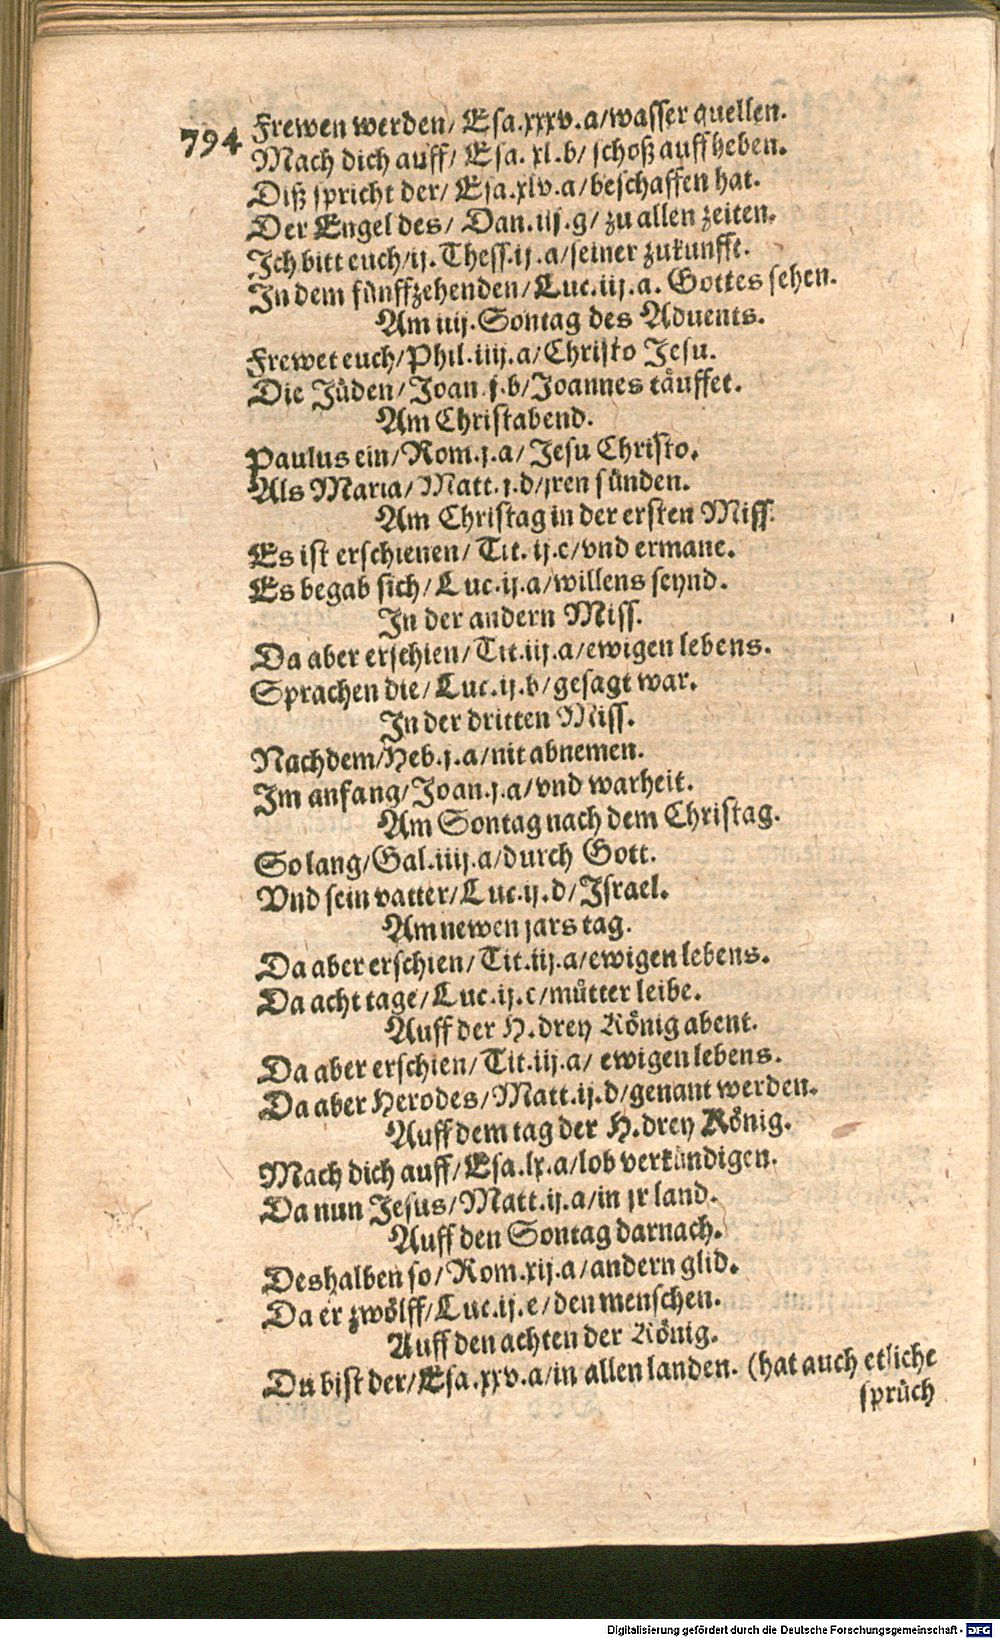 794
Frewen werden/ Esa.xxxv.a/wasser quellen.
Mach dich auff/ Esa. xl.b/ schoß auffheben.
Diß spricht der/ Esa.xlv.a/beschaffen hat.
Der Engel des/ Dan.iij.g/ zu allen zeiten.
Ich bitt euch/ij. Thess.ij.a/seiner zukunfft.
In dem fünffzehenden/Luc.iij.a. Gottes sehen.
Am iiij. Sontag des Aduents.
Frewet euch/Phil.iiij.a/Christo Jesu.
Die Jüden/Joan.j.b/Joannes täuffet.
Am Christabend.
Paulus ein/Rom.j.a/ Jesu Christo.
Als Maria/Matt.j.d/jren sünden.
Am Christag in der ersten Miss.
Es ist erschienen/ Tit. ij.c/vnd ermane.
Es begab sich/Luc.ij.a/willens seynd.
In der andern Miss.
Da aber erschien/Tit.iij.a/ewigen lebens.
Sprachen die/Luc.ij.b/gesagt war.
In der dritten Miss.
Nachdem/Heb.j.a/nit abnemen.
Im anfang/Joan.j.a/vnd warheit.
Am Sontag nach dem Christag.
So lang/Gal.iiij.a/durch Gott.
Vnd sein vatter/Luc.ij.d/Israel.
Am newen jars tag.
Da aber erschien/Tit.iij.a/ewigen lebens.
Da acht tage/Luc.ij.c/mütter leibe.
Auff der H.drey König abent.
Da aber erschien/Tit.iij.a/ ewigen lebens.
Da aber Herodes/Matt.ij.d/genant werden.
Auff dem tag der H.drey König.
Mach dich auff/Esa.lx.a/lob verkündigen.
Da nun Jesus/Matt.ij.a/in jr land.
Auff den Sontag darnach.
Deshalben so/Rom.xij.a/andern glid.
Da er zwölff/Luc.ij.e/den menschen.
Auff den achten der König.
Du bist der/Esa.xxv.a/in allen landen. (hat auch etliche
sprüch
Digitalisierung gefördert durch die Deutsche Forschungsgemeinschaft - DFG